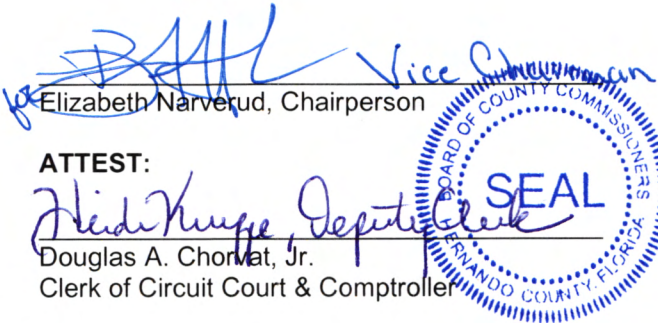 for Vice Chairman
Elizabeth Narverud, Chairperson
ATTEST:
Heidi Kurppe, Deputy Clerk
Douglas A. Chorvat, Jr.
Clerk of Circuit Court & Comptroller
BOARD OF COUNTY COMMISSIONERS
SEAL
HERNANDO COUNTY, FLORIDA